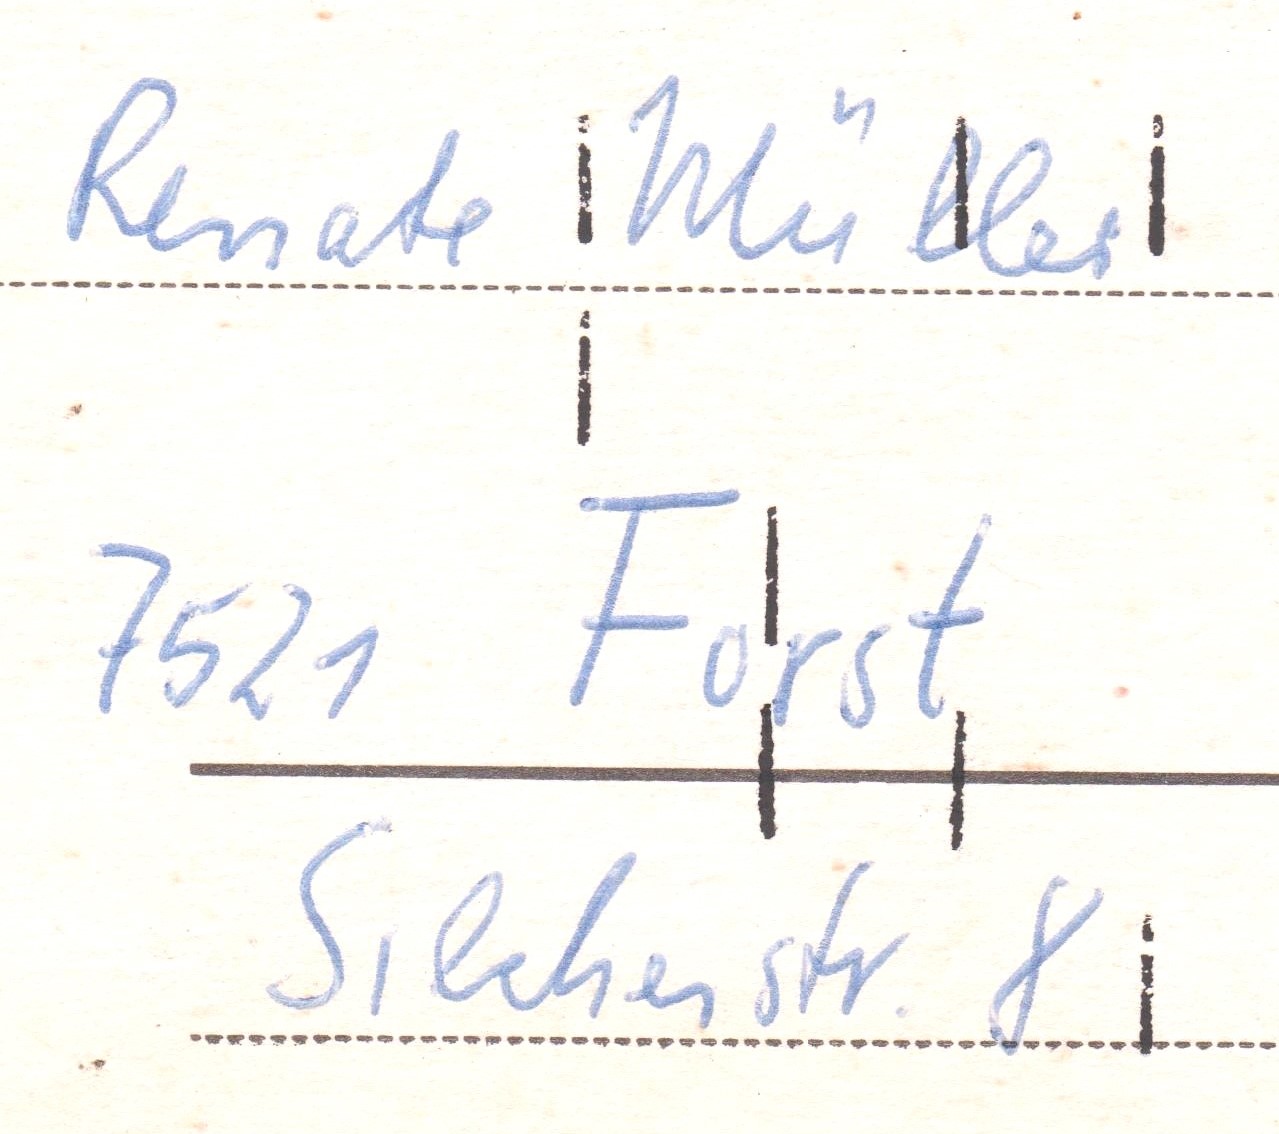 Renate Müller
7521 Forst
Silcherstr. 8